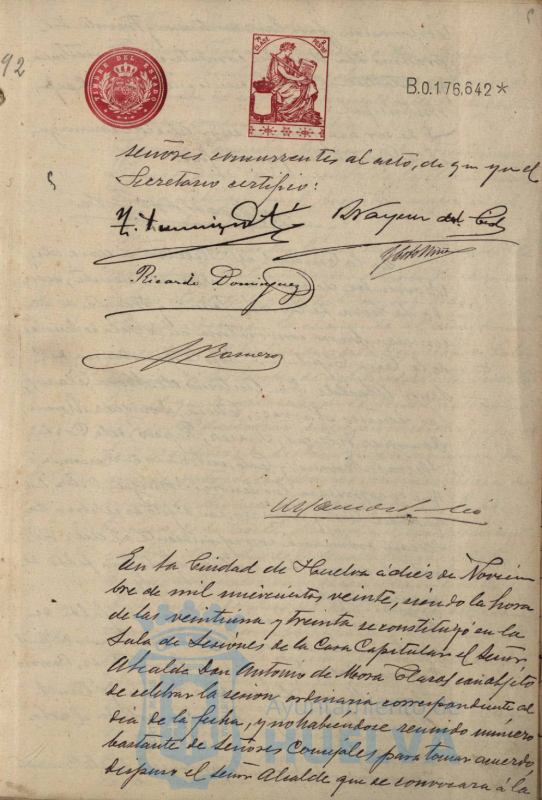 92
TIMBRE DEL ESTADO
B.0.176.642*
señores concurrentes al acto, de que yo el
Secretario certifico:
Ricardo Dominguez
Romero
En la Ciudad de Huelva á diez de Noviem
bre de mil novecientos veinte, siendo la hora
de las veintiuna y treinta se constituyó en la
Sala de Sesiones de la Casa Capitular el Señor
Alcalde Don Antonio de Mora Claros con objeto
de celebrar la sesion ordinaria correspondiente al
dia de la fecha, y no habiendose reunido número
bastante de Señores Concejales para tomar acuerdo,
dispuso el señor Alcalde que se convocara á la
Ayuntamiento
HUELVA